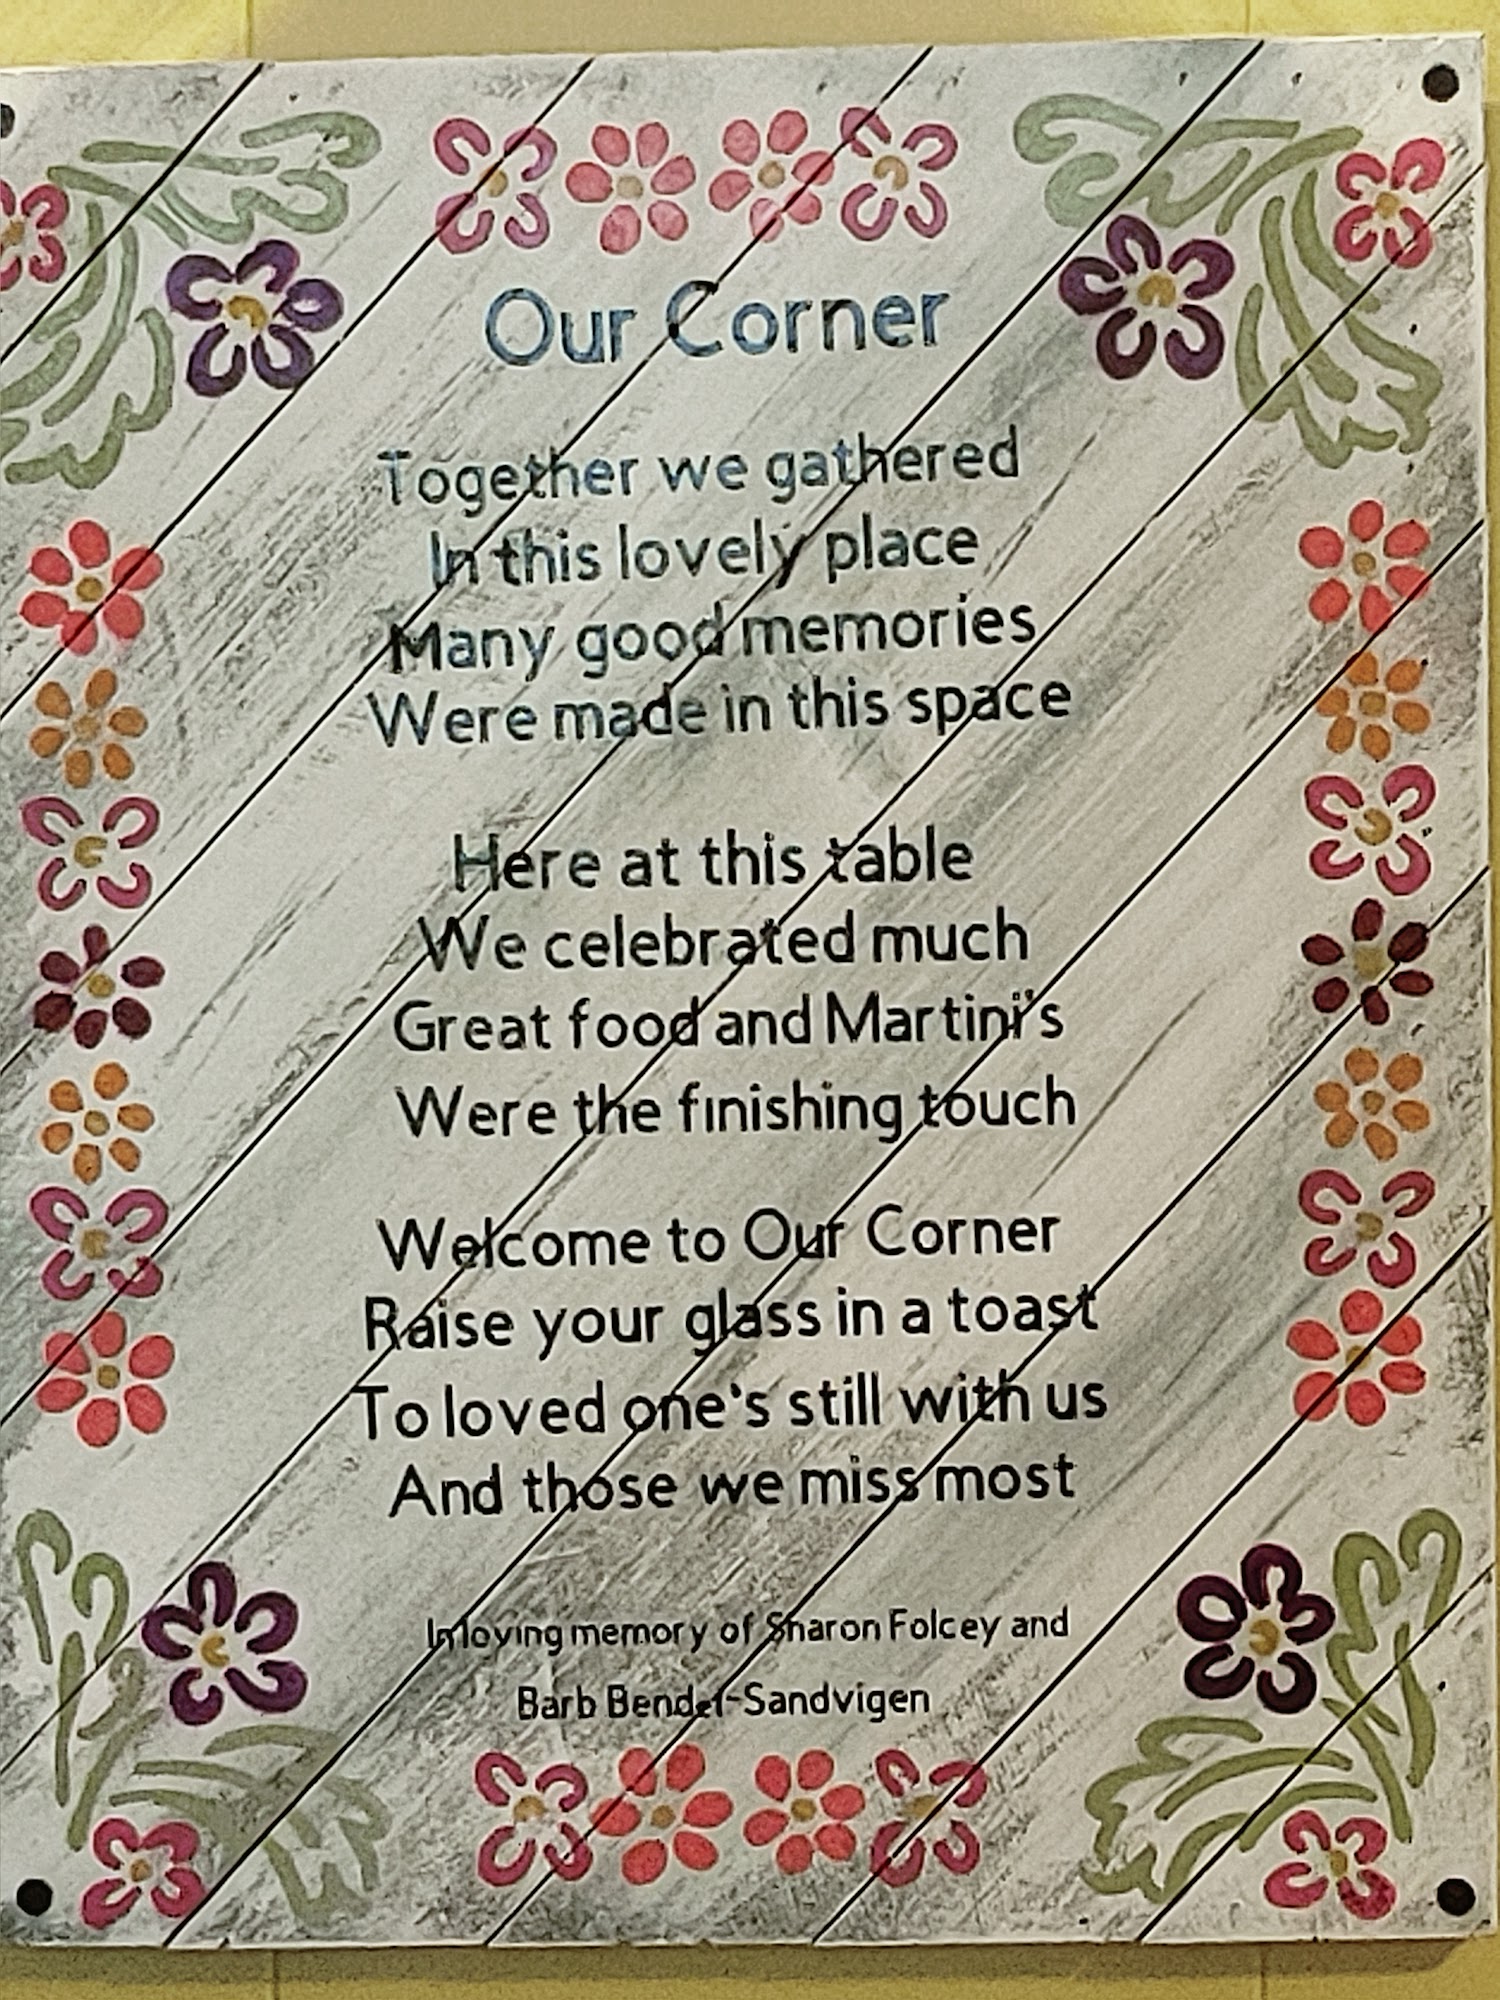 Our Corner
Together we gathered
In this lovely place
Many good memories
Were made in this space
Here at this table
We celebrated much
Great food and Martini's
Were the finishing touch
Welcome to Our Corner
Raise your glass in a toast
To loved one's still with us
And those we miss most
In loving memory of Sharon Folcey and
Barb Bender-Sandvigen